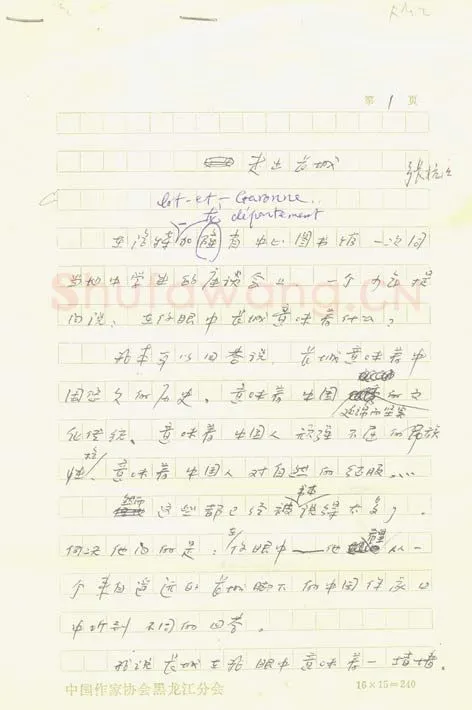 第 1 页
走出长城
张抗抗
Lot-et-Garonne
département
在洛特加龙省中心图书馆一次同
当地中学生的座谈会上,一个少年提
问说:在你眼中长城意味着什么?
我本可以回答说,长城意味着中
国悠久的历史、意味着中国的文
化传统、意味着中国人顽强不屈的民族
性格、意味着中国人对自然的征服……
然而这些都已经被书本说得太多了,
何况他问的是:在你眼中——他希望从一
个来自遥远的长城脚下的中国作家口
中听到不同的回答。
我说长城在我眼中意味着一堵墙。
Shufawang.CN
中国作家协会黑龙江分会
16×15=240